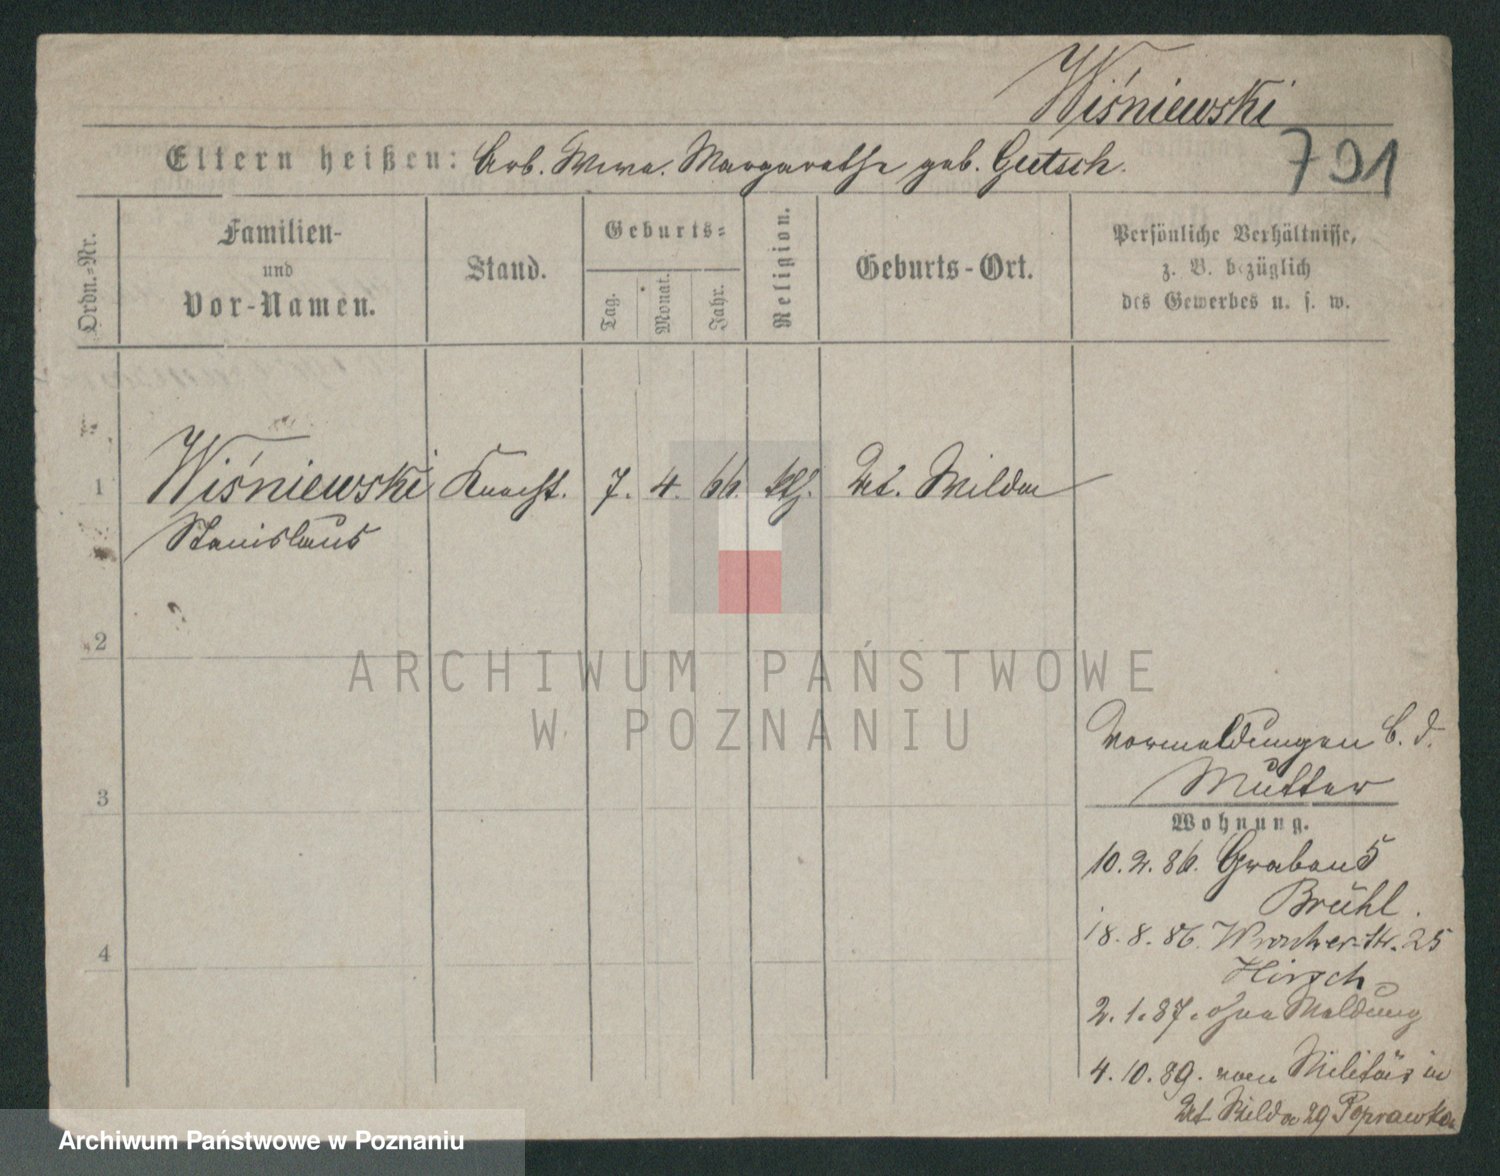 Wiśniewski
Eltern heißen: Arb. Wwe. Margarethe geb. Gutsch.
791
Ordn.-Nr.
Familien-
und
Vor-Namen.
Stand.
Geburts-
Tag.
Monat.
Jahr.
Religion.
Geburts-Ort.
Persönliche Verhältnisse,
z. B. bezüglich
des Gewerbes u. s. w.
1 Wiśniewski Knecht. 7. 4. 66. kth. Wilda
Stanislaus
2
ARCHIWUM PAŃSTWOWE
W POZNANIU
Vormeldungen b. d.
Mutter
3
Wohnung.
10. 2. 86. Graben 5
Brühl.
18. 8. 86. Wronkerstr. 25
4
Hirsch
2. 1. 87. ohne Meldung
4. 10. 89. vom Militär in
Wilda 29 Poprawka
Archiwum Państwowe w Poznaniu